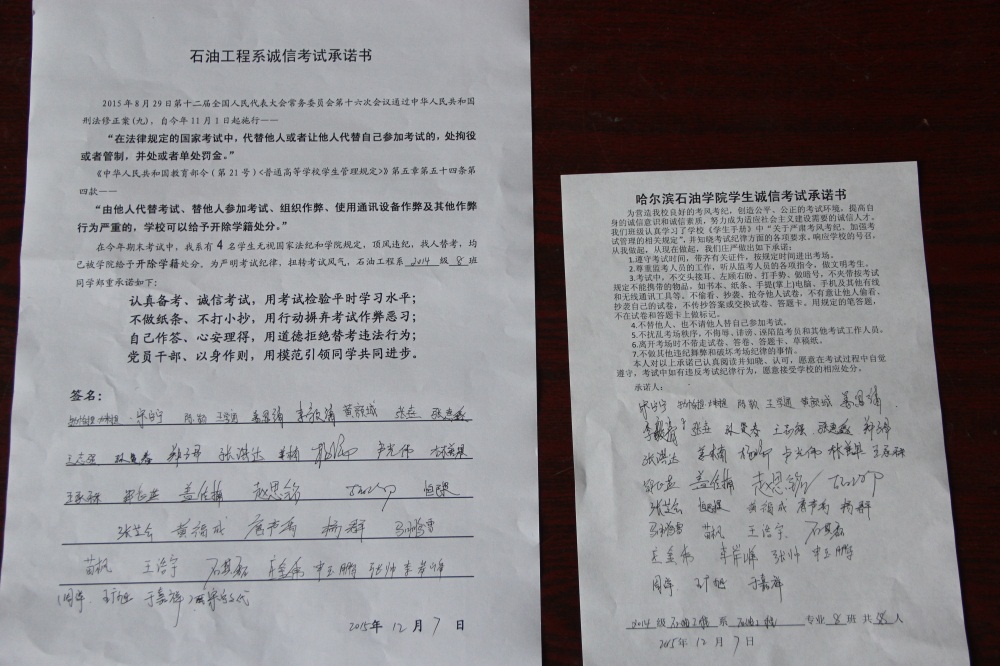 石油工程系诚信考试承诺书
2015年8月29日第十二届全国人民代表大会常务委员会第十六次会议通过中华人民共和国
刑法修正案(九),自今年11月1日起施行——
“在法律规定的国家考试中,代替他人或者让他人代替自己参加考试的,处拘役
或者管制,并处或者单处罚金。”
《中华人民共和国教育部令(第21号)<普通高等学校学生管理规定>》第五章第五十四条第
四款——
“由他人代替考试、替他人参加考试、组织作弊、使用通讯设备作弊及其他作弊
行为严重的,学校可以给予开除学籍处分。”
在今年期末考试中,我系有4名学生无视国家法纪和学院规定,顶风违纪,找人替考,均
已被学院给予开除学籍处分。为严明考试纪律,扭转考试风气,石油工程系 2014 级 8 班
同学郑重承诺如下:
认真备考、诚信考试,用考试检验平时学习水平;
不做纸条、不打小抄,用行动摒弃考试作弊恶习;
自己作答、心安理得,用道德拒绝替考违法行为;
党员干部、以身作则,用模范引领同学共同进步。
签名:
张洪达 卢光伟
盖佳楠 赵思铭
黄福成 杨群
苗帆 王治宇 石其磊 申玉鹏 张帅
周岸 于嘉祥
2015年 12月 7日
哈尔滨石油学院学生诚信考试承诺书
为营造我校良好的考风考纪,创造公平、公正的考试环境,提高自
身的诚信意识和诚信素质,努力成为适应社会主义建设需要的诚信人才。
我们班级认真学习了学校《学生手册》中“关于严肃考风考纪,加强考
试管理的相关规定”,并知晓考试纪律方面的各项要求,响应学校的号召,
从我做起,从现在做起,我们庄严做出如下承诺:
1.遵守考试时间,带齐有关证件,按规定时间进出考场。
2.尊重监考人员的工作,听从监考人员的各项指令,做文明考生。
3.考试中,不交头接耳、左顾右盼、打手势、做暗号,不夹带按考试
规定不能携带的物品。如书本、纸条、手提(掌上)电脑、手机及其他有线
和无线通讯工具等。不偷看、抄袭、抢夺他人试卷,不有意让他人偷看、
抄袭自己的试卷,不传抄答案或交换试卷、答题卡。用规定的笔答题,
不在试卷和答题卡上做标记。
4.不替他人,也不请他人替自己参加考试。
5.不扰乱考场秩序,不侮辱、诽谤、诬陷监考员和其他考试工作人员。
6.离开考场时不带走试卷、答卷、答题卡、草稿纸。
7.不做其他违纪舞弊和破坏考场纪律的事情。
本人对以上承诺已认真阅读并知晓、认可,愿意在考试过程中自觉
遵守,考试中如有违反考试纪律行为,愿意接受学校的相应处分。
承诺人:
张洪达 卢光伟
盖佳楠 赵思铭
黄福成 杨群
苗帆 王治宇 石其磊
张帅 申玉鹏
周岸 于嘉祥
2014 级 石油工程 系 石油工程 专业 8 班 共 人
2015年 12月 7日